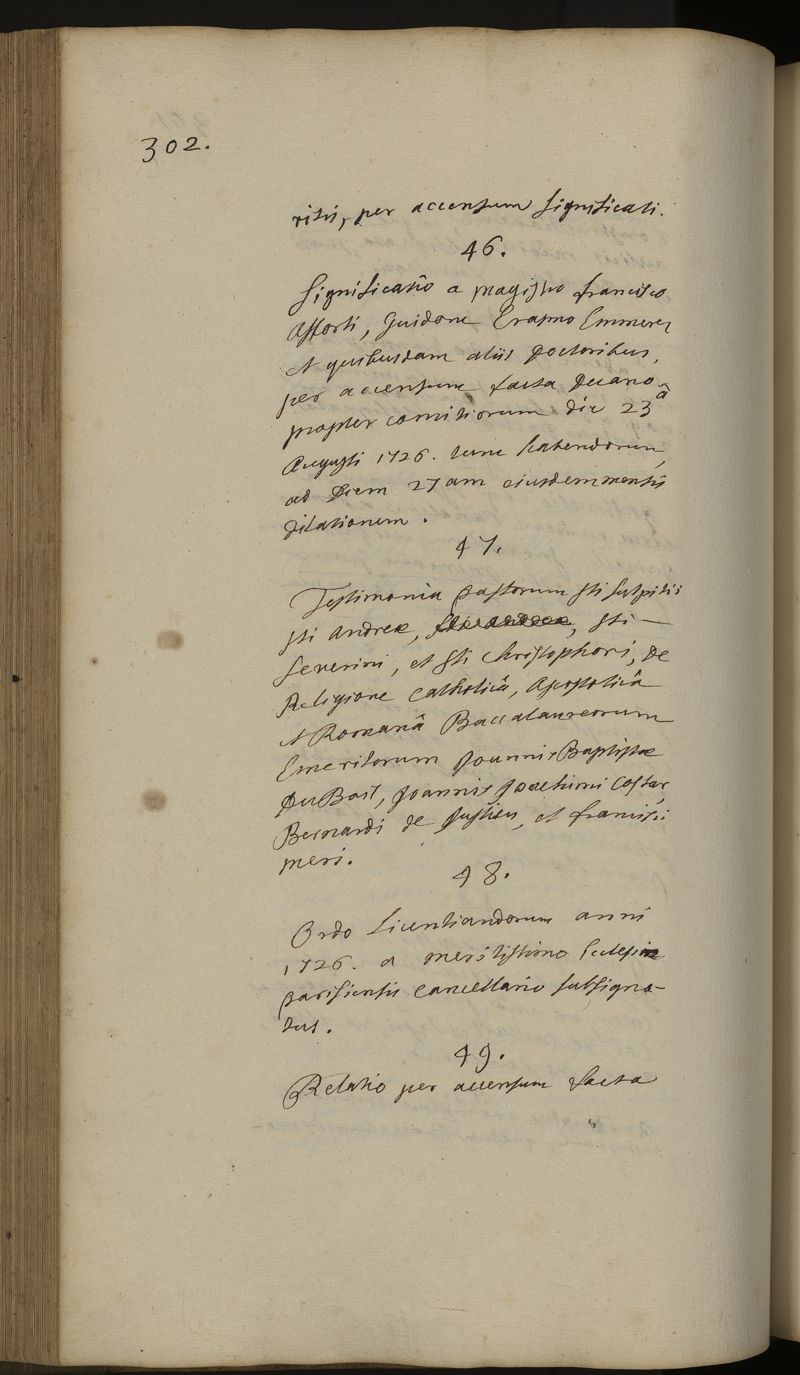 302.
ritis, per accensum significati.
46.
Significatio a magistro francisco
Afforti, Guidone Erasmo Emmerez
et quibusdam aliis doctoribus,
per accensum facta Decano
propter comitiorum die 23â
Augusti 1726. tunc habendorum,
ad Diem 27am ejusdem mensis
dilationem.
47.
Testimonia pastorum sti sulpitii
sti Andreæ, sti
severini, et sti Christophori, de
Religione Catholicâ, Apostolicâ
et Romanâ Baccalaureorum
Emeritorum Joannis Baptistæ
DuBois, Joannis Joachimi Costar,
Bernardi de Jussieu, et francisci
meri.
48.
Ordo Licentiandorum anni
1726. a meritissimo Ecclesiæ
parisiensis Cancellario subsigna-
tus.
49.
Relatio per accensum facta